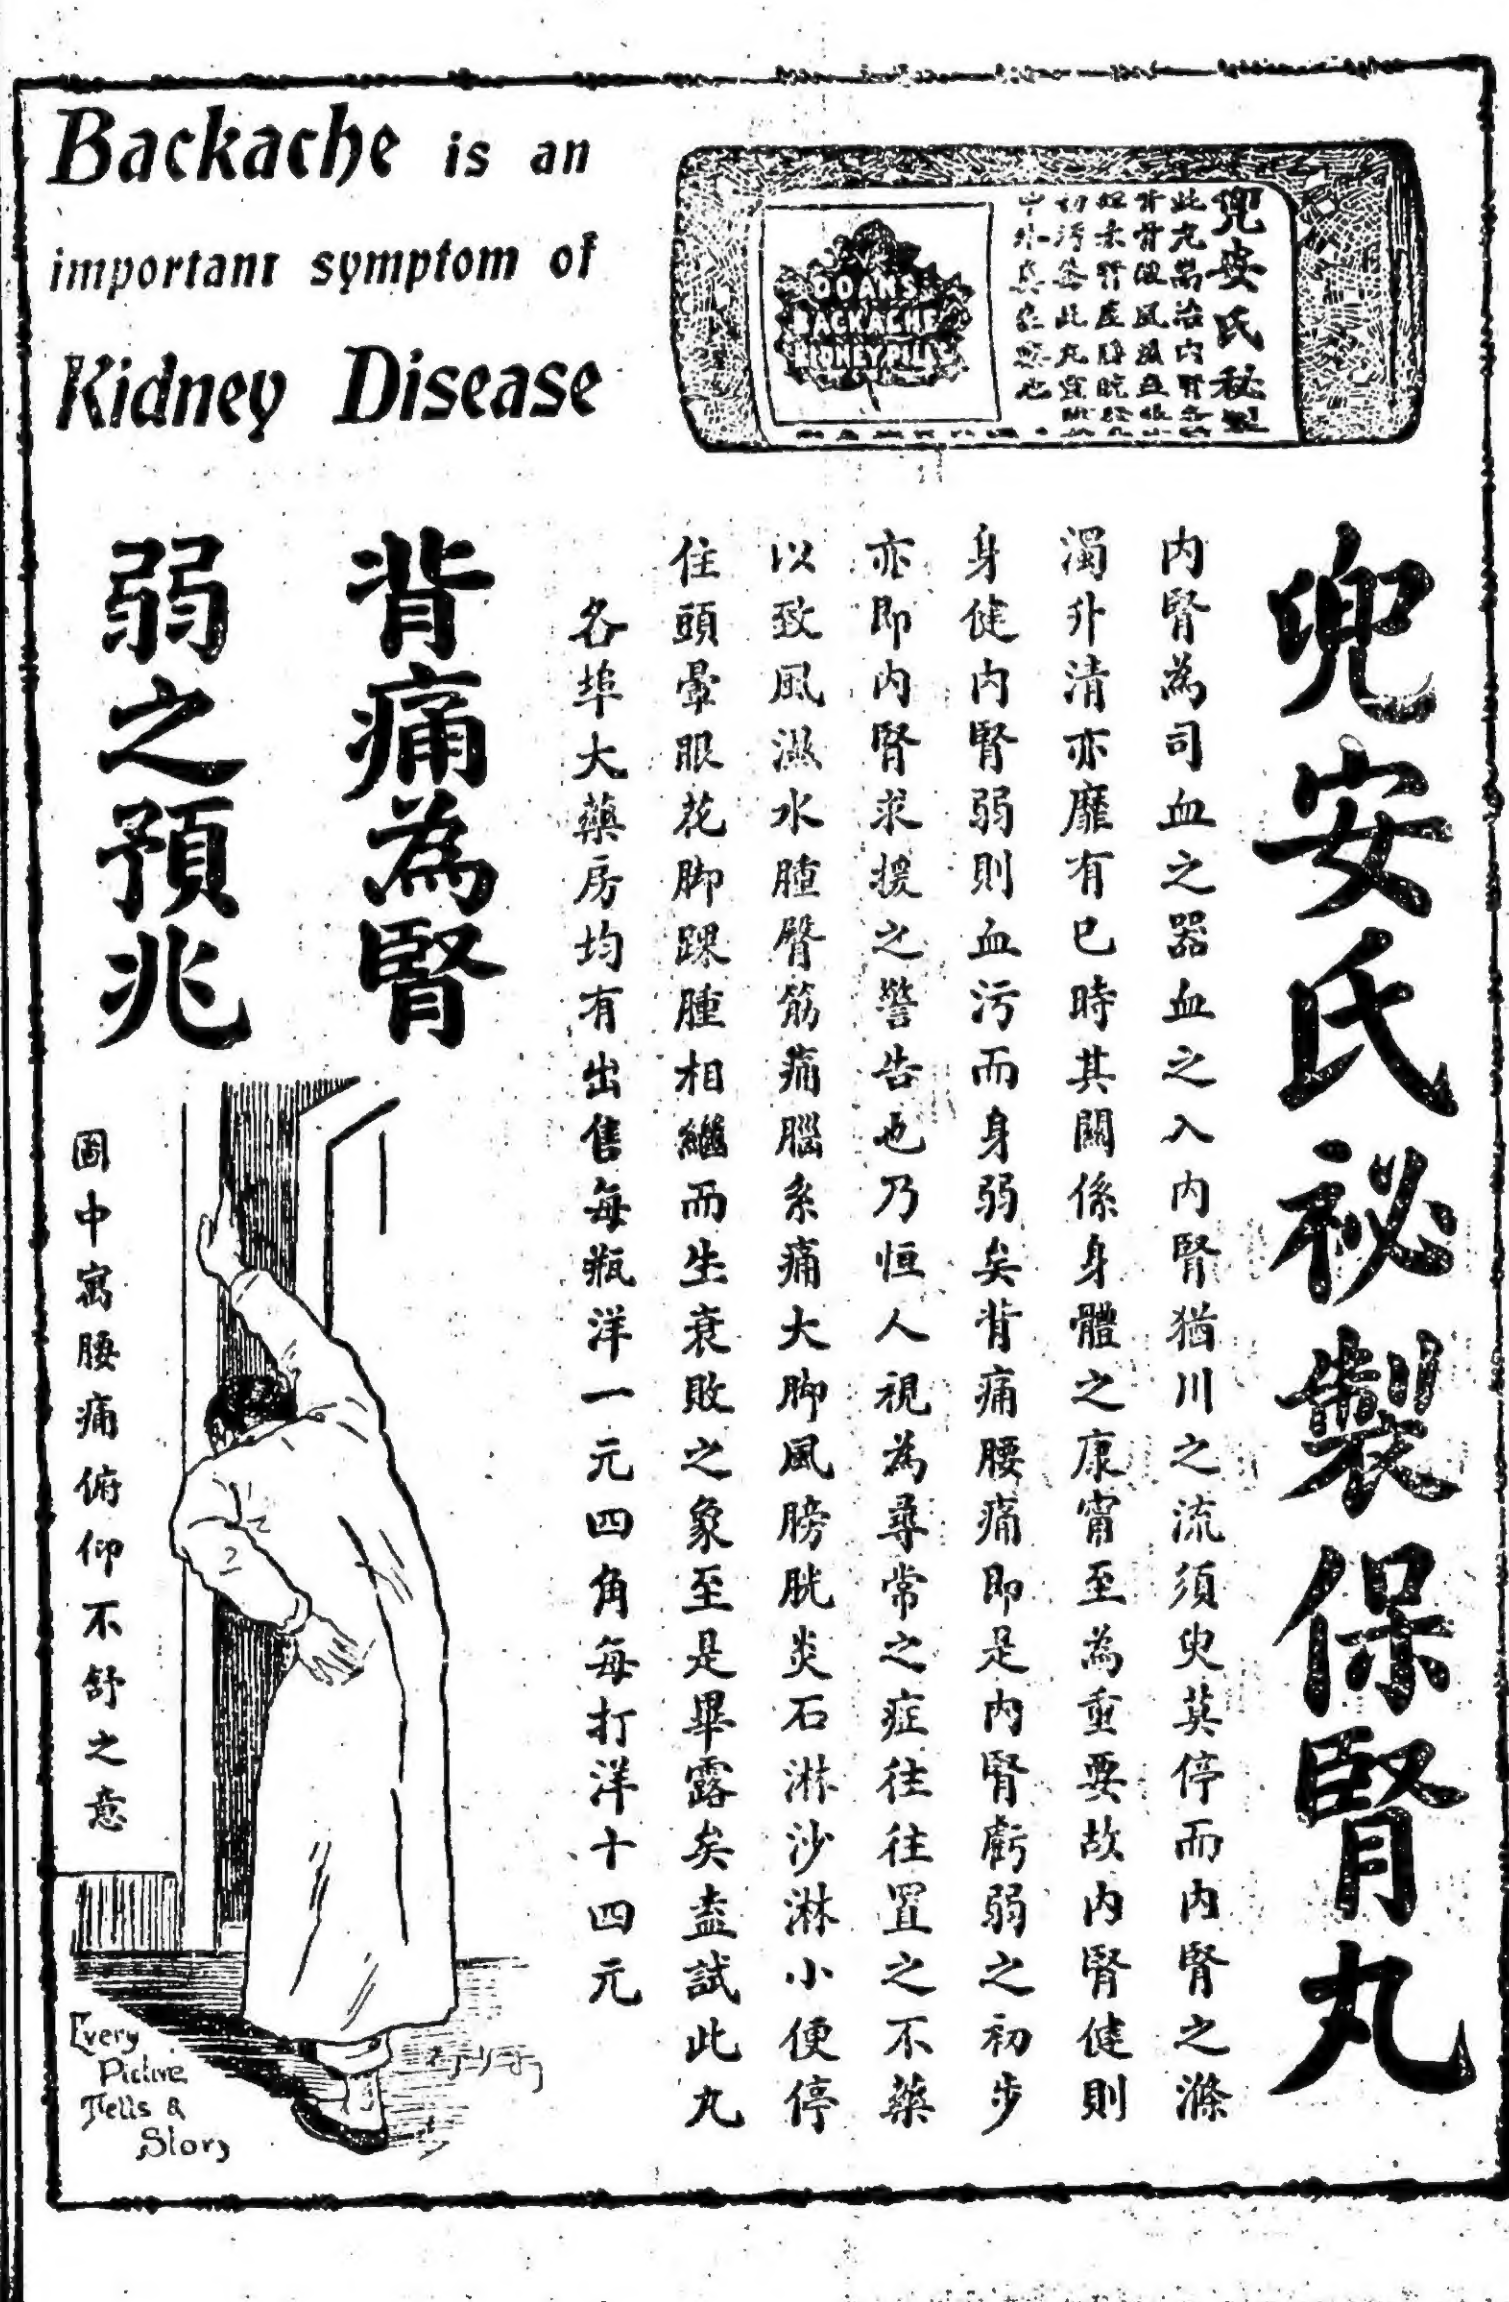 Backache is an
important symptom of
Kidney Disease
DOANS
BACKACHE
KIDNEY PILLS
兜安氏秘製
兜安氏祕製保腎丸
內腎為司血之器血之入內腎猶川之流須臾莫停而內腎之滌
濁升清亦靡有已時其關係身體之康甯至為重要故內腎健則
身健內腎弱則血污而身弱矣背痛腰痛即是內腎虧弱之初步
亦即內腎求援之警告也乃恒人視為尋常之症往往置之不藥
以致風濕水腫臀筋痛腦系痛大脚風膀胱炎石淋沙淋小便停
住頭暈眼花脚踝腫相繼而生衰敗之象至是畢露矣盍試此丸
各埠大藥房均有出售每瓶洋一元四角每打洋十四元
背痛為腎
弱之預兆
圖中寫腰痛俯仰不舒之意
Every
Picture
Tells a
Story